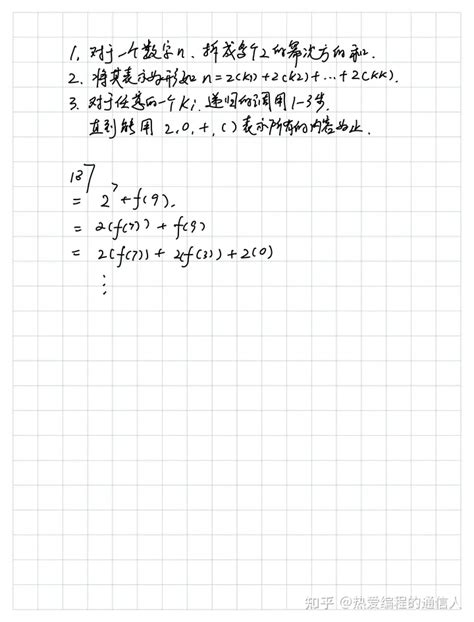 1. 对于一个数字n, 拆成多个2的幂次方的和.
2. 将其表示为形如 n=2(k1)+2(k2)+...+2(kk).
3. 对于任意的一个Ki, 递归的调用1-3步.
直到能用 2,0,+,()表示所有的内容为止.
137
= 2^7+f(9).
= 2(f(7)) + f(9)
= 2(f(7)) + 2(f(3)) + 2(0)
⋮
知乎 @热爱编程的通信人